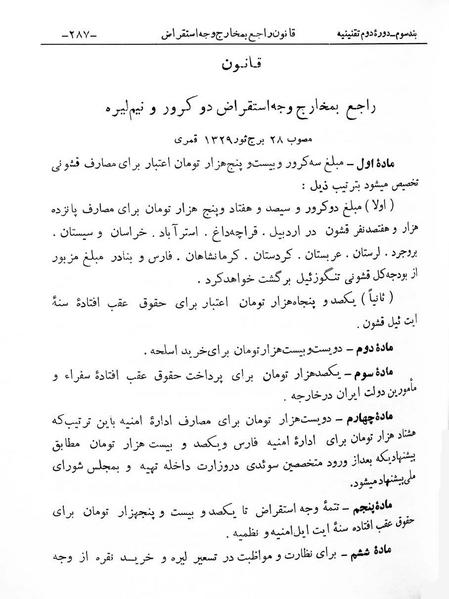 بند سوم ـ دورهٔ دوم تقنینیه قانون راجع بمخارج وجه استقراض ـ۲۸۷ـ
قانون
راجع بمخارج وجه استقراض دو کرور و نیم لیره
مصوب ۲۸ برج ثور ۱۳۲۹ قمری
مادهٔ اول ـ مبلغ سه کرور و بیست و پنج هزار تومان اعتبار برای مصارف قشونی
تخصیص میشود بترتیب ذیل :
( اولا ) مبلغ دو کرور و سیصد و هفتاد و پنج هزار تومان برای مصارف پانزده
هزار و هفتصد نفر قشون در اردبیل . قراچه داغ . استرآباد . خراسان و سیستان .
بروجرد . لرستان . عربستان . کردستان . کرمانشاهان . فارس و بنادر مبلغ مزبور
از بودجه کل قشونی تنگوزئیل برگشت خواهد کرد .
( ثانیاً ) یکصد و پنجاه هزار تومان اعتبار برای حقوق عقب افتادهٔ سنهٔ
ایت ئیل قشون .
مادهٔ دوم ـ دویست و بیست هزار تومان برای خرید اسلحه .
مادهٔ سوم ـ یکصد هزار تومان برای پرداخت حقوق عقب افتادهٔ سفراء و
مأمورین دولت ایران در خارجه .
مادهٔ چهارم ـ دویست هزار تومان برای مصارف ادارهٔ امنیه باین ترتیب که
هشتاد هزار تومان برای ادارهٔ امنیه فارس و یکصد و بیست هزار تومان مطابق
پیشنهادیکه بعد از ورود متخصصین سوئدی در وزارت داخله تهیه و بمجلس شورای
ملی پیشنهاد میشود.
مادهٔ پنجم ـ تتمهٔ وجه استقراض تا یکصد و بیست و پنجهزار تومان برای
حقوق عقب افتاده سنهٔ ایت ایل امنیه و نظمیه .
مادهٔ ششم ـ برای نظارت و مواظبت در تسعیر لیره و خرید نقره از وجه